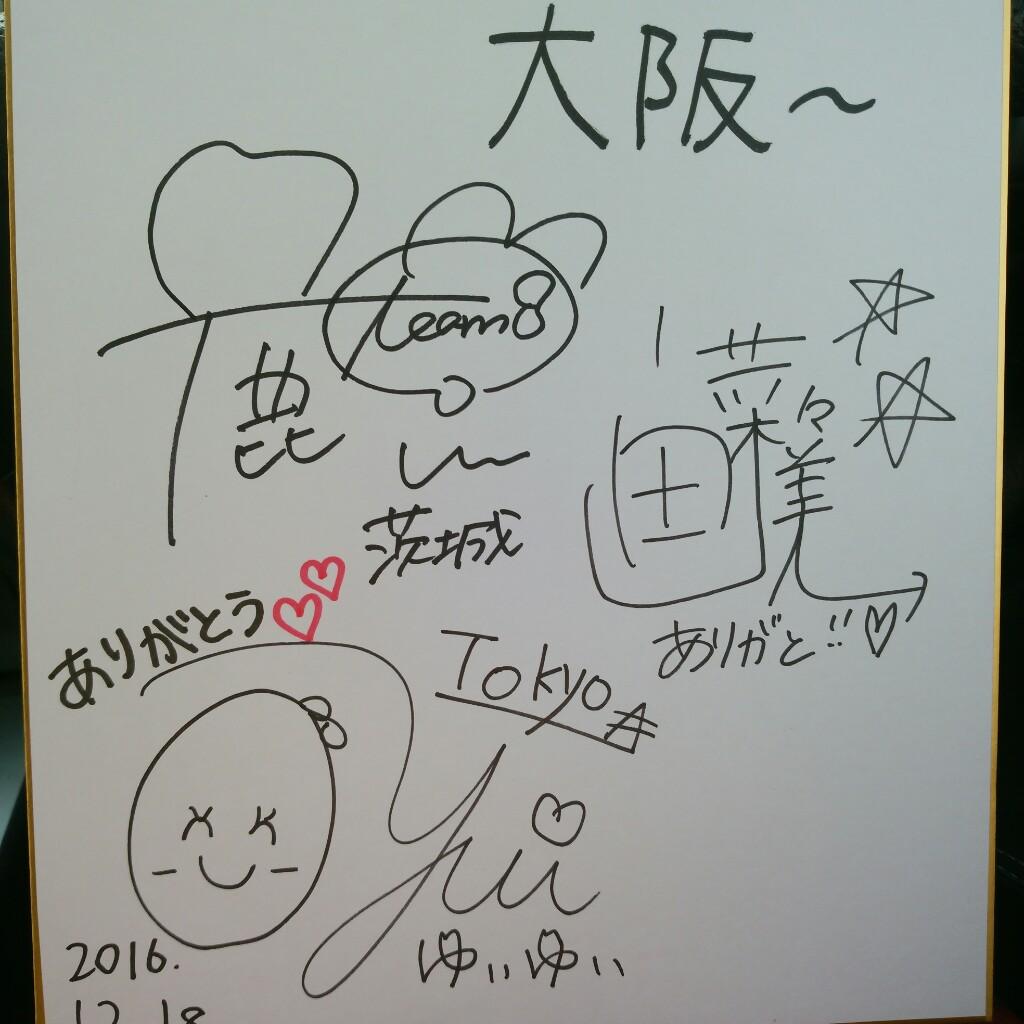 大阪～
team8
茨城
ありがとう
菜々美
ありがと!!
Tokyo
yui
ゆいゆい
2016.
12.18